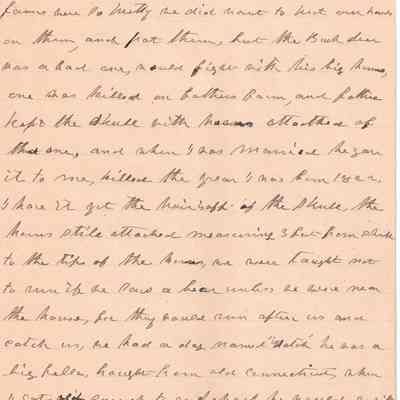 fawns were so pretty we did want to put our hands
on them, and pat them, but the Buck deer
was a bad one, would fight with his big horns,
one was killed on Fathers Farm, and father
kept the skull with horns attached of
that one, and when I was married he gave
it to me, killed the year I was born
I have it yet the hair off of the skull, the
horns still attached measuring 3 feet from skull
to the tips of the horns, we were taught not
to run if we saw a bear unless we were near
the house, for they would run after us and
catch us, we had a dog named he was a
big fellow, brought from old Connecticut, when
I got old enough to